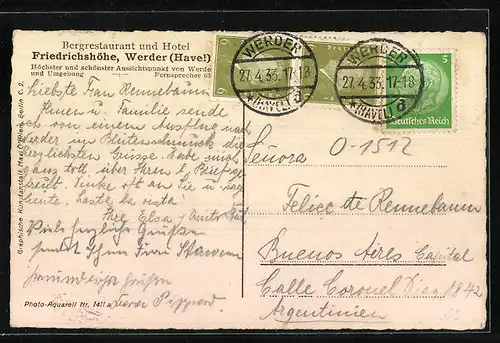 Bergrestaurant und Hotel
Friedrichshöhe, Werder (Havel)
Höchster und schönster Aussichtspunkt von Werder
und Umgebung Fernsprecher
WERDER
27.4.33.17-18
(HAVEL) d
WERDER
27.4.33.17-18
(HAVEL) d
6
5
Deutsches Reich
Liebste Frau Rennebaum
Ihnen u. Familie sende
ich von einem Ausflug nach
Werder im Blütenschmuck die
herzlichsten Grüsse. Habe mich
ganz toll über Ihren l. Brief ge-
freut. Denke oft an Sie u. sage
heute, hasta la vista!
Ihre Elsa
Viele herzliche Grüße
sendet Ihnen Frau
freundliche Grüßen
Señora
O-1512
Felice de Rennebaum
Buenos Aires Capital
Calle Coronel Diaz 1842
Argentinien
Graphische Kunstanstalt Max O'Brien, Berlin C. 2.
Photo-Aquarell Nr. 1411 a